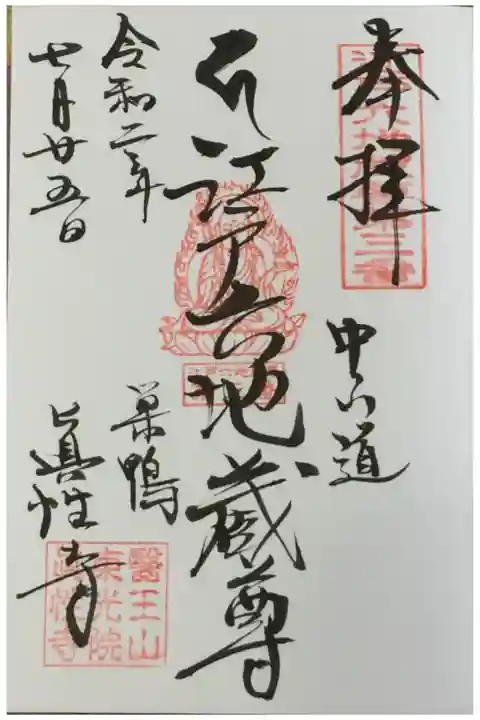 奉拝
中山道
江戸六地蔵尊
令和二年
巣鴨
七月廿五日
眞性寺
醫王山
東光院
眞性寺